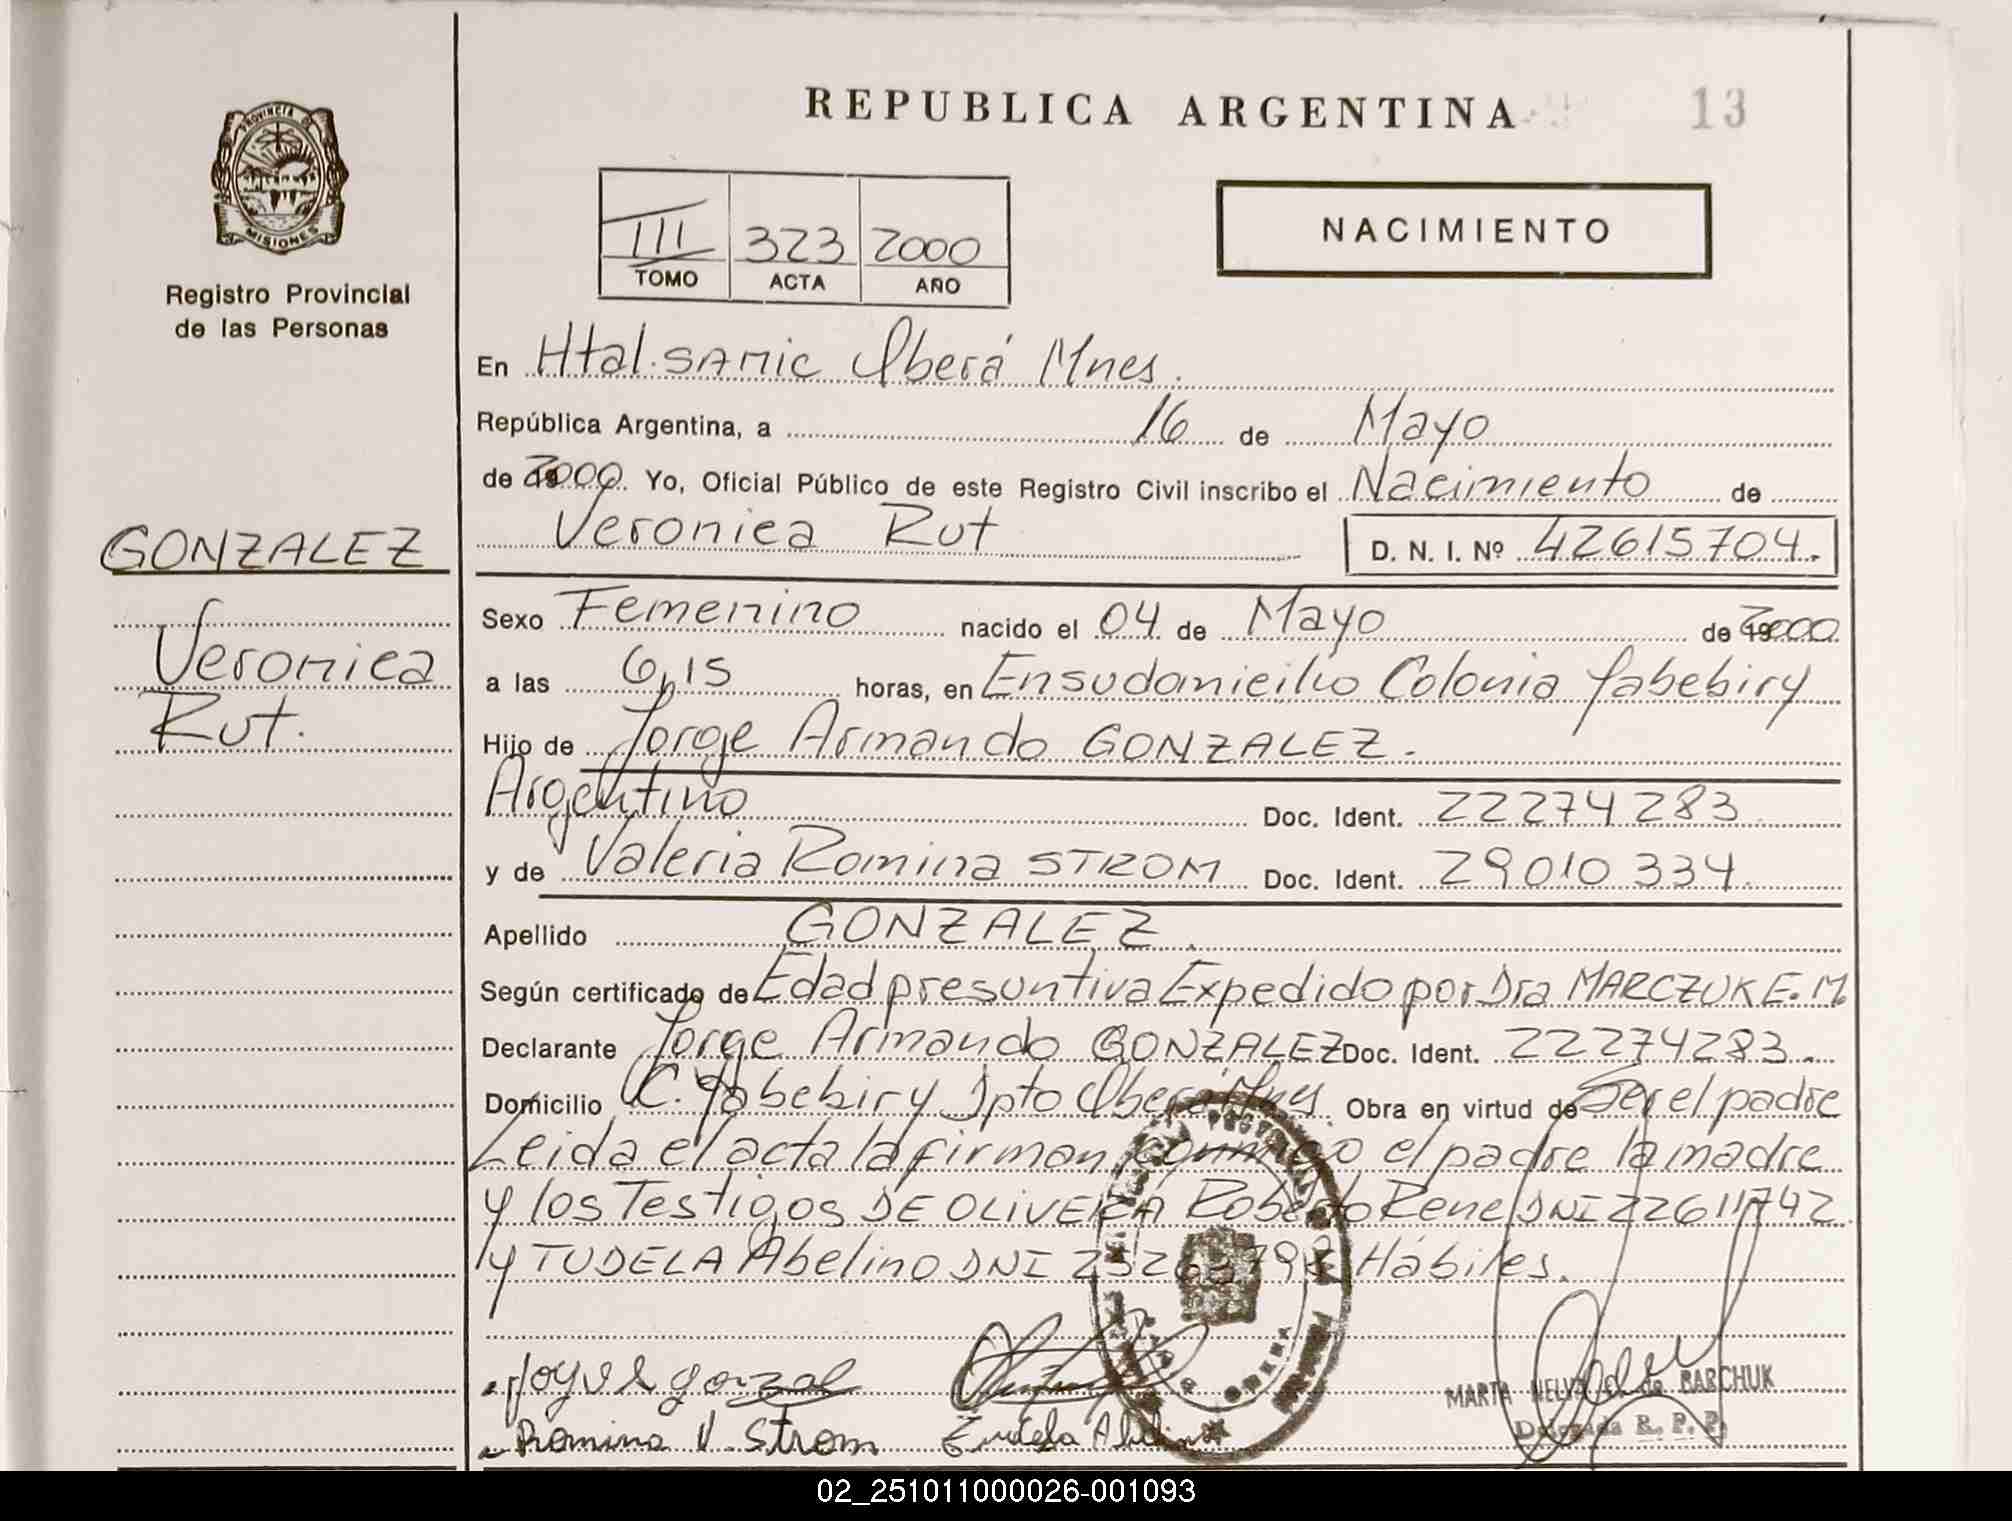 REPUBLICA ARGENTINA
13
PROVINCIA DE
MISIONES
Registro Provincial
de las Personas
III 323 2000
TOMO ACTA AÑO
NACIMIENTO
En Htal. SAMIC Oberá Mnes.
República Argentina, a 16 de Mayo
de 2000 Yo, Oficial Público de este Registro Civil inscribo el Nacimiento de
Veronica Rut
D. N. I. Nº 42615704.
GONZALEZ
Veronica
Rut.
Sexo Femenino nacido el 04 de Mayo de 2000
a las 6,15 horas, en Ensudomicilio Colonia Yabebiry
Hijo de Jorge Armando GONZALEZ.
Argentino Doc. Ident. 22274283
y de Valeria Romina STROM Doc. Ident. 29010334.
Apellido GONZALEZ.
Según certificado de Edad presuntiva Expedido por Dra MARCZUK E. M.
Declarante Jorge Armando GONZALEZ Doc. Ident. 22274283.
Domicilio C. Yabebiry Dpto Oberá Mnes. Obra en virtud de Ser el padre
Leida el acta la firman conmigo el padre la madre
y los Testigos DE OLIVEIRA Roberto Rene DNI 22611742
y TUDELA Abelino DNI Hábiles.
Romina V. Strom
MARTA de BARCHUK
Delegada R. P. P.
02_251011000026-001093